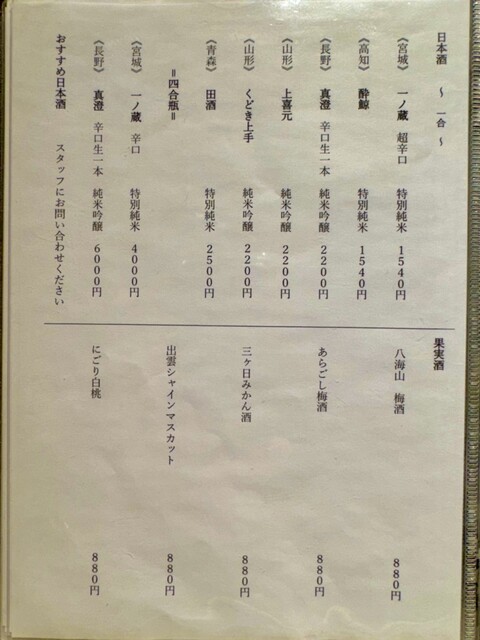 日本酒 ~ 一合 ~
《宮城》 一ノ蔵 超辛口 特別純米 1540円
《高知》 酔鯨 特別純米 1540円
《長野》 真澄 辛口生一本 純米吟醸 2200円
《山形》 上喜元 純米吟醸 2200円
《山形》 くどき上手 純米吟醸 2200円
《青森》 田酒 特別純米 2500円
=四合瓶=
《宮城》 一ノ蔵 辛口 特別純米 4000円
《長野》 真澄 辛口生一本 純米吟醸 6000円
おすすめ日本酒 スタッフにお問い合わせください
果実酒
八海山 梅酒 880円
あらごし梅酒 880円
三ヶ日みかん酒 880円
出雲シャインマスカット 880円
にごり白桃 880円